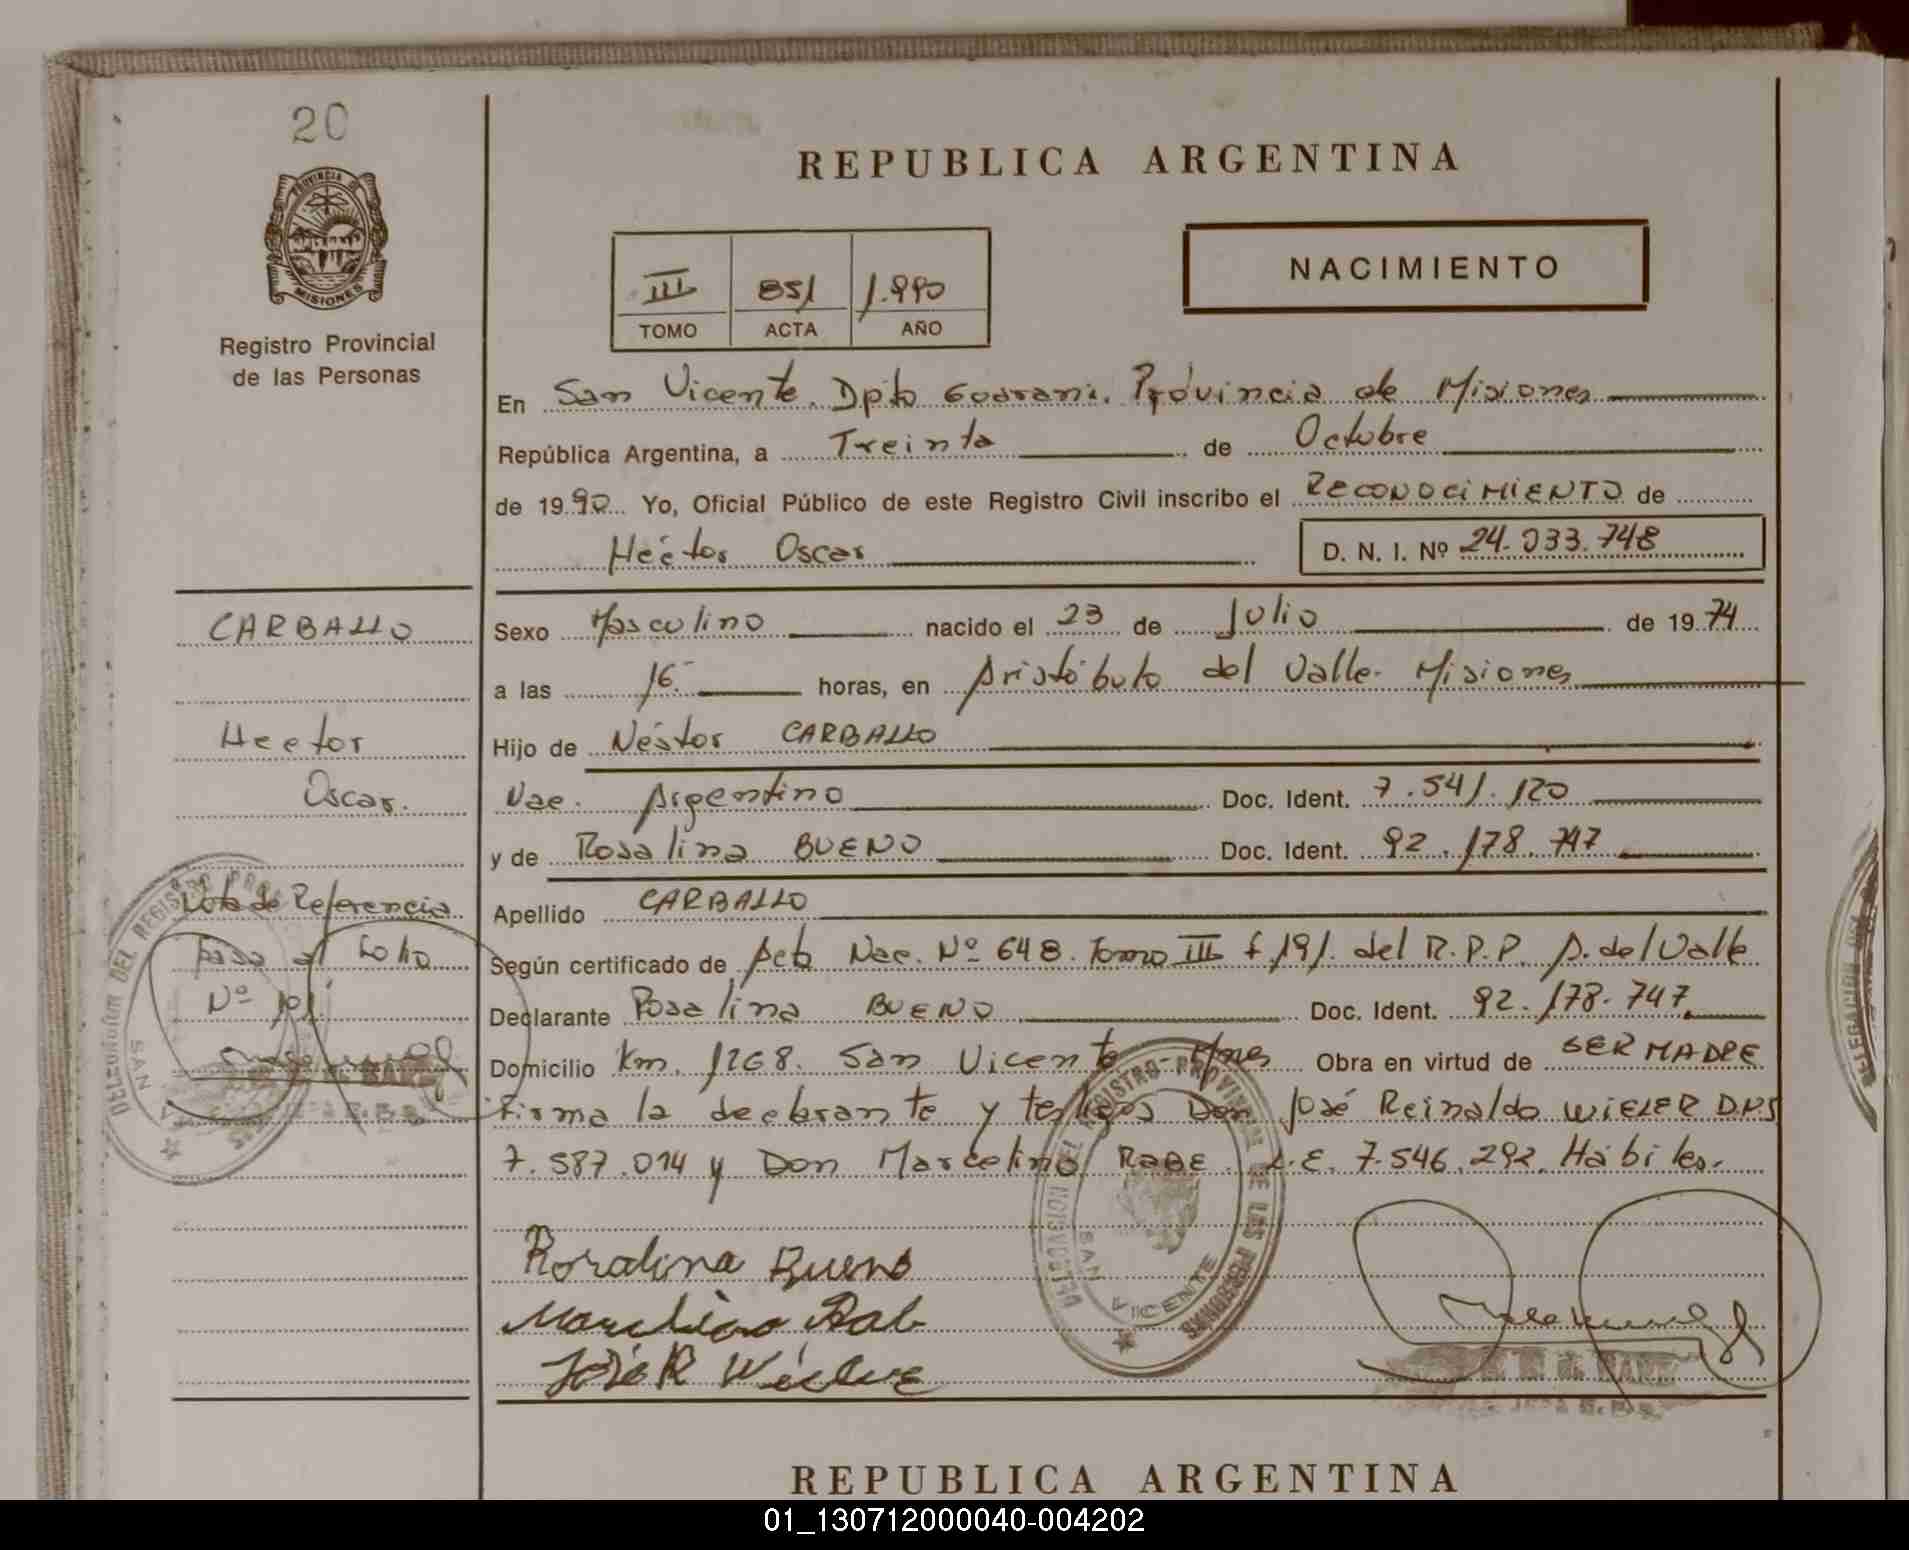 20
PROVINCIA DE
MISIONES
Registro Provincial
de las Personas
REPUBLICA ARGENTINA
III 851 1.990
TOMO ACTA AÑO
NACIMIENTO
En San Vicente. Dpto Guarani. Provincia de Misiones
República Argentina, a Treinta de Octubre
de 1990 Yo, Oficial Público de este Registro Civil inscribo el RECONOCIMIENTO de
Héctor Oscar D. N. I. Nº 24.033.748
CARBALLO
Hector
Oscar.
Nota de Referencia
Pasa al Folio
Nº 101
Sexo Masculino nacido el 23 de Julio de 1974
a las 16 horas, en Aristóbulo del Valle. Misiones
Hijo de Néstor CARBALLO
Nac. Argentino Doc. Ident. 7.541.120
y de Rosalina BUENO Doc. Ident. 92.178.747
Apellido CARBALLO
Según certificado de Acta Nac. Nº 648. Tomo III f.191. del R.P.P. A. del Valle
Declarante Rosalina BUENO Doc. Ident. 92.178.747
Domicilio Km. 1268. San Vicente - Mnes Obra en virtud de SER MADRE
Firma la declarante y testigos Don José Reinaldo WIELER D.N.I
7.587.014 y Don Marcelino RABE. L.E. 7.546.292. Hábiles.
Rosalina Bueno
DELEGACION DEL REGISTRO PROVINCIAL DE LAS PERSONAS
SAN VICENTE
REPUBLICA ARGENTINA
01_130712000040-004202